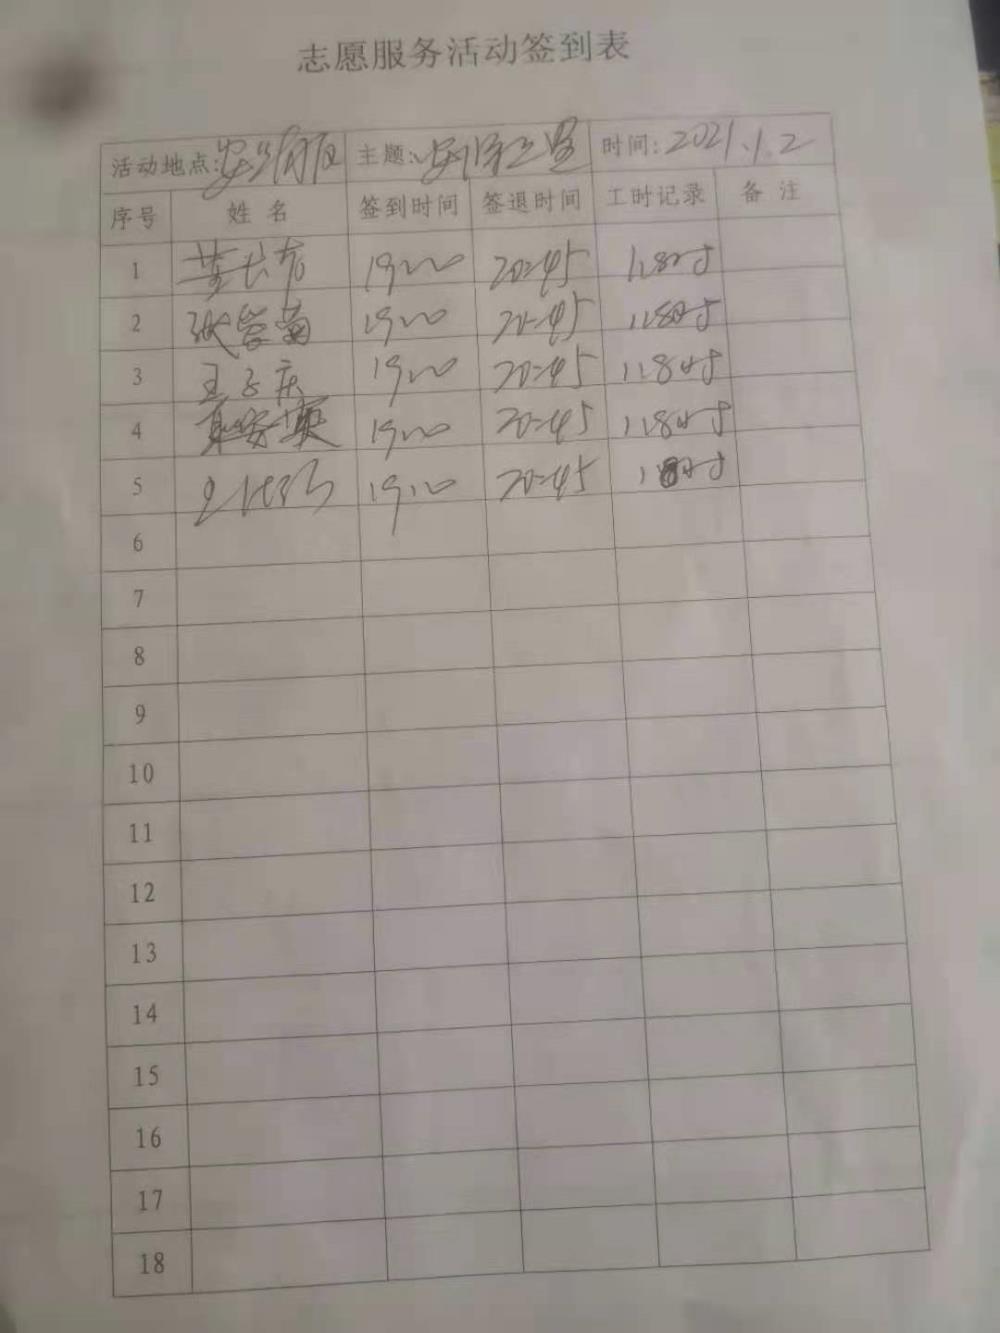 志愿服务活动签到表
活动地点: 主题: 时间: 2021.1.2
序号 姓名 签到时间 签退时间 工时记录 备注
1 19:00 20:45 1.8时
2 19:00 20:45 1.8时
3 王子庆 19:00 20:45 1.8时
4 19:00 20:45 1.8时
5 19:00 20:45 1.8时
6
7
8
9
10
11
12
13
14
15
16
17
18